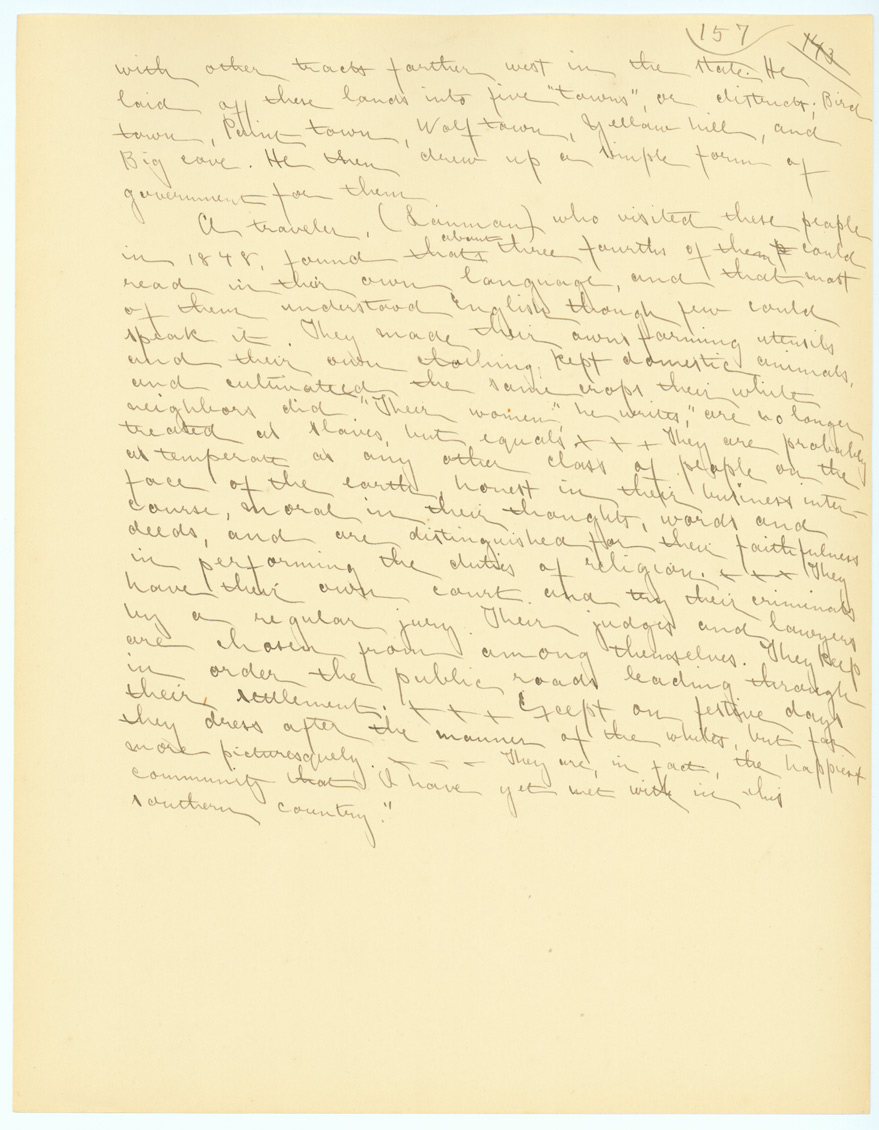 157 143
with other tracts farther west in the state. He
laid off these lands into five "towns", or districts; Bird
town, Paint town, Wolf town, Yellow hill, and
Big cove. He then drew up a simple form of
government for them
A traveler, (Lanman) who visited these people
in 1848, found that about three fourths of them could
read in their own language, and that most
of them understood English though few could
speak it. They made their own farming utensils
and their own clothing; kept domestic animals,
and cultivated the same crops their white
neighbors did. "Their women", he writes, "are no longer
treated as slaves, but equals x x x They are probably
as temperate as any other class of people on the
face of the earth, honest in their business inter-
course, moral in their thoughts, words and
deeds, and are distinguished for their faithfulness
in performing the duties of religion. x x x They
have their own court and try their criminals
by a regular jury. Their judges and lawyers
are chosen from among themselves. They keep
in order the public roads leading through
their settlement. x x x Except on festive days
they dress after the manner of the whites, but far
more picturesquely. - - - They are, in fact, the happiest
community that I have yet met with in this
southern country."